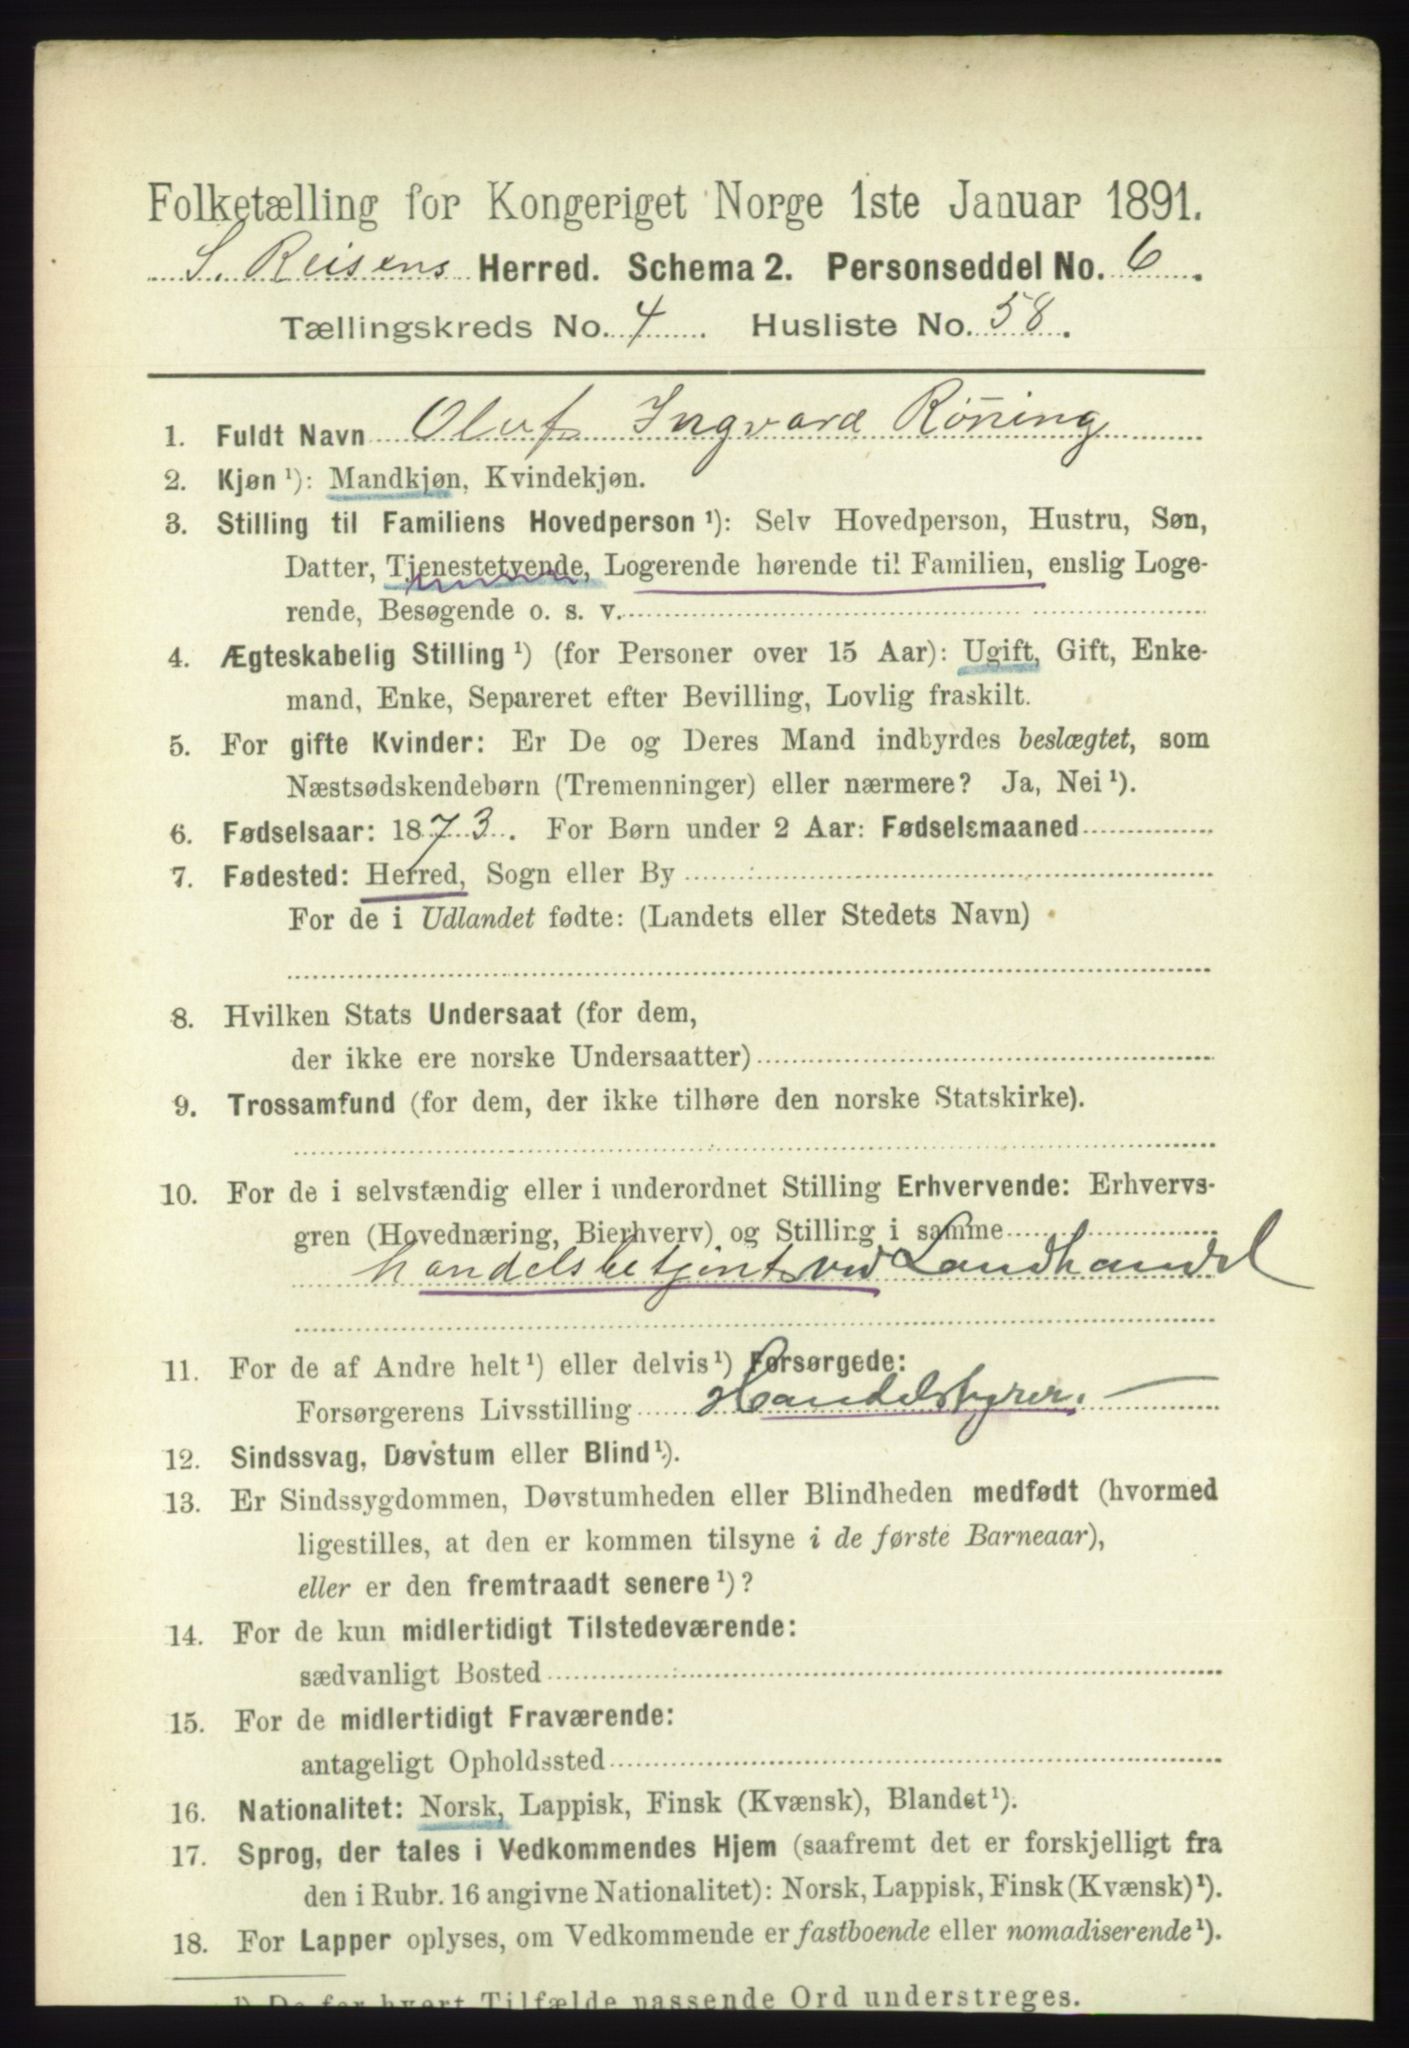 Folketælling for Kongeriget Norge 1ste Januar 1891.
S. Reisens Herred. Schema 2. Personseddel No. 6.
Tællingskreds No. 4 Husliste No. 58.
1. Fuldt Navn Oluf Ingvard Röning
2. Kjøn ¹): Mandkjøn, Kvindekjøn.
3. Stilling til Familiens Hovedperson ¹): Selv Hovedperson, Hustru, Søn,
Datter, Tjenestetyende, Logerende hørende til Familien, enslig Loge-
rende, Besøgende o. s. v.
4. Ægteskabelig Stilling ¹) (for Personer over 15 Aar): Ugift, Gift, Enke-
mand, Enke, Separeret efter Bevilling, Lovlig fraskilt.
5. For gifte Kvinder: Er De og Deres Mand indbyrdes beslægtet, som
Næstsødskendebørn (Tremenninger) eller nærmere? Ja, Nei ¹).
6. Fødselsaar: 1873. For Børn under 2 Aar: Fødselsmaaned
7. Fødested: Herred, Sogn eller By
For de i Udlandet fødte: (Landets eller Stedets Navn)
8. Hvilken Stats Undersaat (for dem,
der ikke ere norske Undersaatter)
9. Trossamfund (for dem, der ikke tilhøre den norske Statskirke).
10. For de i selvstændig eller i underordnet Stilling Erhvervende: Erhvervs-
gren (Hovednæring, Bierhverv) og Stilling i samme
handelsbetjent ved Landhandel
11. For de af Andre helt ¹) eller delvis ¹) Forsørgede:
Forsørgerens Livsstilling Handelstyrer.
12. Sindssvag, Døvstum eller Blind ¹).
13. Er Sindssygdommen, Døvstumheden eller Blindheden medfødt (hvormed
ligestilles, at den er kommen tilsyne i de første Barneaar),
eller er den fremtraadt senere ¹)?
14. For de kun midlertidigt Tilstedeværende:
sædvanligt Bosted
15. For de midlertidigt Fraværende:
antageligt Opholdssted
16. Nationalitet: Norsk, Lappisk, Finsk (Kvænsk), Blandet ¹).
17. Sprog, der tales i Vedkommendes Hjem (saafremt det er forskjelligt fra
den i Rubr. 16 angivne Nationalitet): Norsk, Lappisk, Finsk (Kvænsk) ¹).
18. For Lapper oplyses, om Vedkommende er fastboende eller nomadiserende ¹).
¹) De for hvert Tilfælde passende Ord understreges.